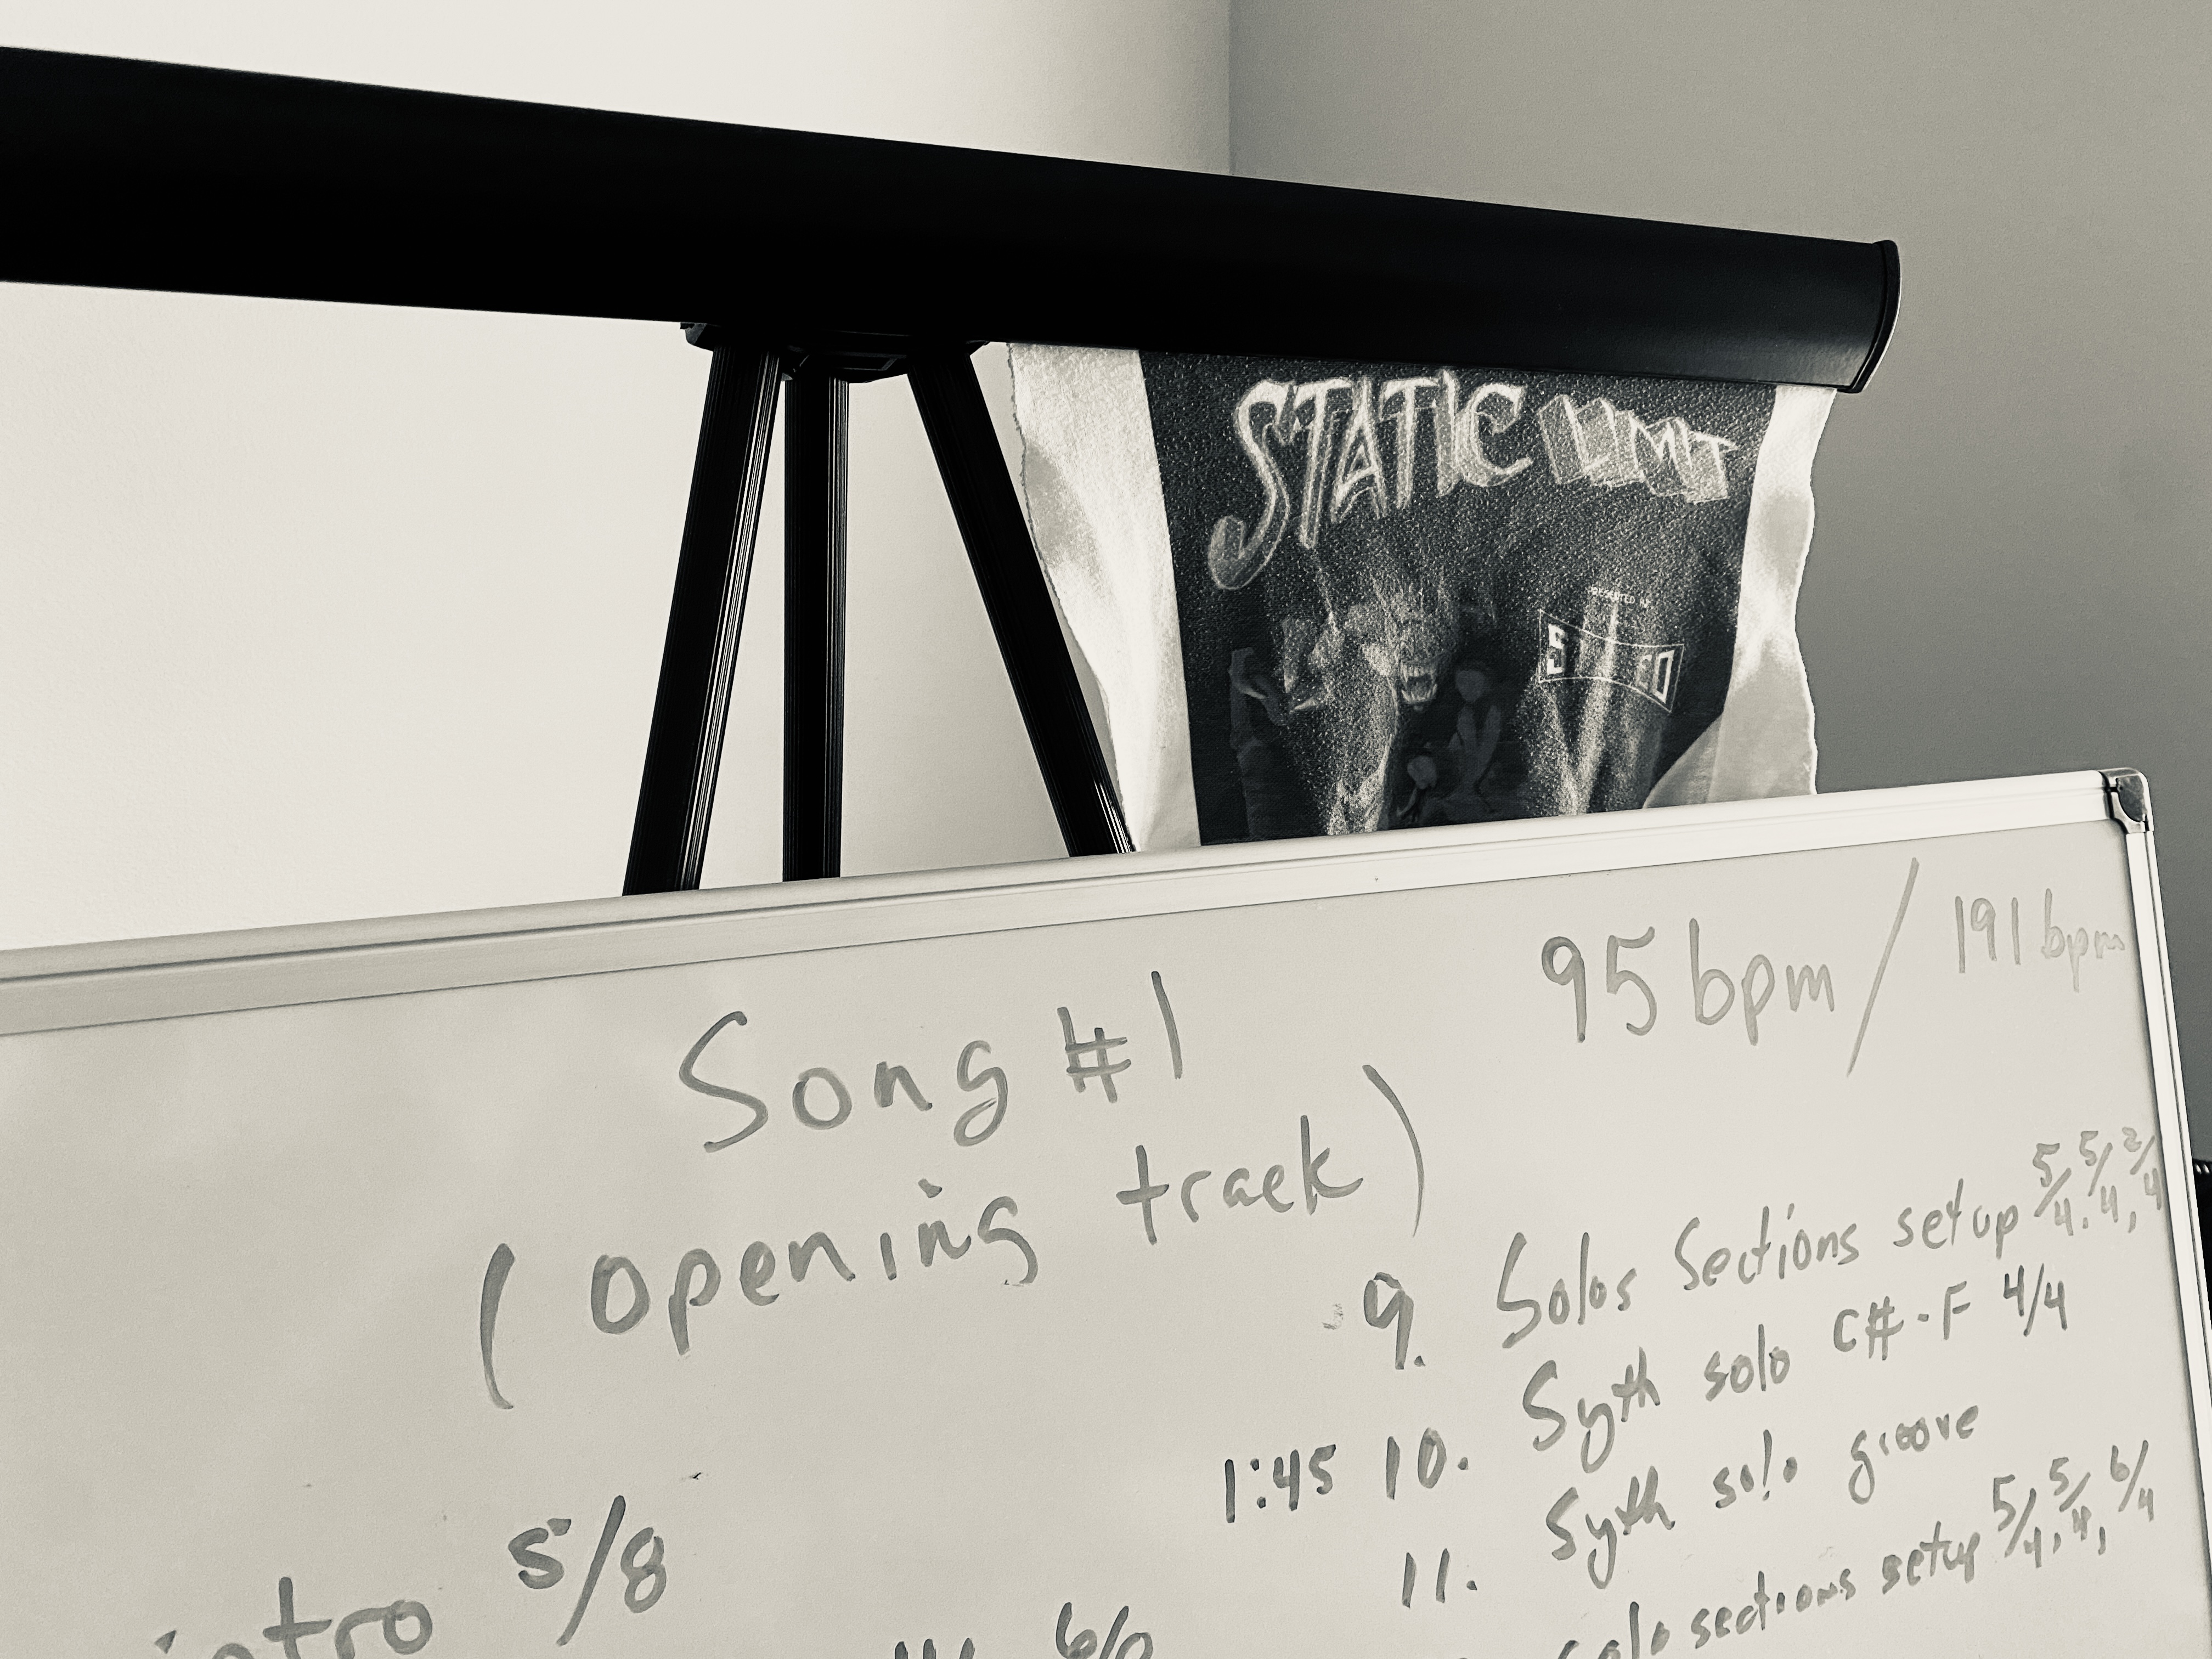 STATIC LIMIT
PRESENTED BY
95 bpm / 191 bpm
Song #1
(opening track)
9. Solos Sections setup 5/4, 5/4, 2/4
1:45 10. Syth solo C#-F 4/4
11. Syth solo groove
solo sections setup 5/4, 5/4, 6/4
intro 5/8